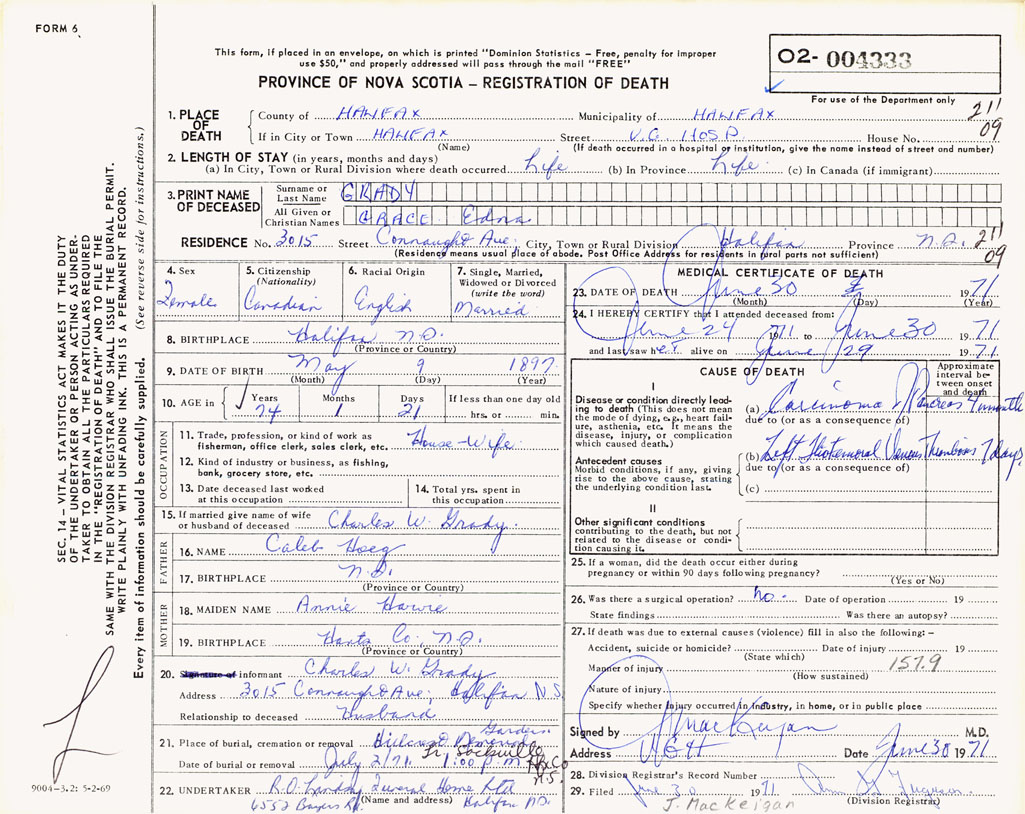 FORM 6
This form, if placed in an envelope, on which is printed "Dominion Statistics – Free, penalty for improper
use $50," and properly addressed will pass through the mail "FREE"
PROVINCE OF NOVA SCOTIA – REGISTRATION OF DEATH
02- 004333
For use of the Department only
211
09
1. PLACE OF DEATH
County of HALIFAX Municipality of HALIFAX
If in City or Town HALIFAX Street V.G. HOSP. House No.
(Name) (If death occurred in a hospital or institution, give the name instead of street and number)
2. LENGTH OF STAY (in years, months and days)
(a) In City, Town or Rural Division where death occurred Life (b) In Province Life (c) In Canada (if immigrant)
3. PRINT NAME OF DECEASED
Surname or Last Name GRADY
All Given or Christian Names GRACE Edna
RESIDENCE No. 3015 Street Connaught Ave. City, Town or Rural Division Halifax Province N.S. 211
09
(Residence means usual place of abode. Post Office Address for residents in rural parts not sufficient)
4. Sex
Female
5. Citizenship
(Nationality)
Canadian
6. Racial Origin
English
7. Single, Married,
Widowed or Divorced
(write the word)
Married
8. BIRTHPLACE Halifax N.S.
(Province or Country)
9. DATE OF BIRTH May 9 1897
(Month) (Day) (Year)
10. AGE in
Years Months Days If less than one day old
74 1 21 hrs. or min.
OCCUPATION
11. Trade, profession, or kind of work as House-Wife
fisherman, office clerk, sales clerk, etc.
12. Kind of industry or business, as fishing,
bank, grocery store, etc.
13. Date deceased last worked
at this occupation
14. Total yrs. spent in
this occupation
15. If married give name of wife
or husband of deceased Charles W. Grady.
FATHER
16. NAME Caleb Hoeg
17. BIRTHPLACE N.S.
(Province or Country)
MOTHER
18. MAIDEN NAME Annie Harvie
19. BIRTHPLACE Hants Co. N.S.
(Province or Country)
20. Signature of informant Charles W. Grady
Address 3015 Connaught Ave; Halifax N.S.
Relationship to deceased Husband
21. Place of burial, cremation or removal Gardens
Lr. Sackville
Date of burial or removal July 2/71. 1:00 P.M. Hfx Co
N.S.
22. UNDERTAKER Funeral Home Ltd
(Name and address)
6552 Bayers Rd. Halifax N.S.
MEDICAL CERTIFICATE OF DEATH
23. DATE OF DEATH June 30 1971
(Month) (Day) (Year)
24. I HEREBY CERTIFY that I attended deceased from:
June 24 1971 to June 30 1971
and last saw her alive on June 29 1971.
CAUSE OF DEATH
Approximate
interval be-
tween onset
and death
I
Disease or condition directly lead-
ing to death (This does not mean
the mode of dying, e.g., heart fail-
ure, asthenia, etc. It means the
disease, injury, or complication
which caused death.)
(a) Carcinoma Pancreas 4 months
due to (or as a consequence of)
Antecedent causes
Morbid conditions, if any, giving
rise to the above cause, stating
the underlying condition last.
(b) Left Iliofemoral Venous Thrombosis 7 days
due to (or as a consequence of)
(c)
II
Other significant conditions
contributing to the death, but not
related to the disease or condi-
tion causing it.
25. If a woman, did the death occur either during
pregnancy or within 90 days following pregnancy?
(Yes or No)
26. Was there a surgical operation? No. Date of operation 19
State findings Was there an autopsy?
27. If death was due to external causes (violence) fill in also the following: –
Accident, suicide or homicide? Date of injury 19
(State which)
Manner of injury 157.9
(How sustained)
Nature of injury
Specify whether Injury occurred in industry, in home, or in public place
Signed by J MacKeigan M.D.
Address VGH Date June 30 1971
28. Division Registrar's Record Number
29. Filed June 30 1971 Ferguson
(Division Registrar)
J. MacKeigan
SEC. 14 – VITAL STATISTICS ACT MAKES IT THE DUTY
OF THE UNDERTAKER OR PERSON ACTING AS UNDER-
TAKER TO OBTAIN ALL THE PARTICULARS REQUIRED
IN THE "REGISTRATION OF DEATH" AND TO FILE THE
SAME WITH THE DIVISION REGISTRAR WHO SHALL ISSUE THE BURIAL PERMIT.
WRITE PLAINLY WITH UNFADING INK. THIS IS A PERMANENT RECORD.
Every item of information should be carefully supplied. (See reverse side for instructions.)
9004-3.2: 5-2-69